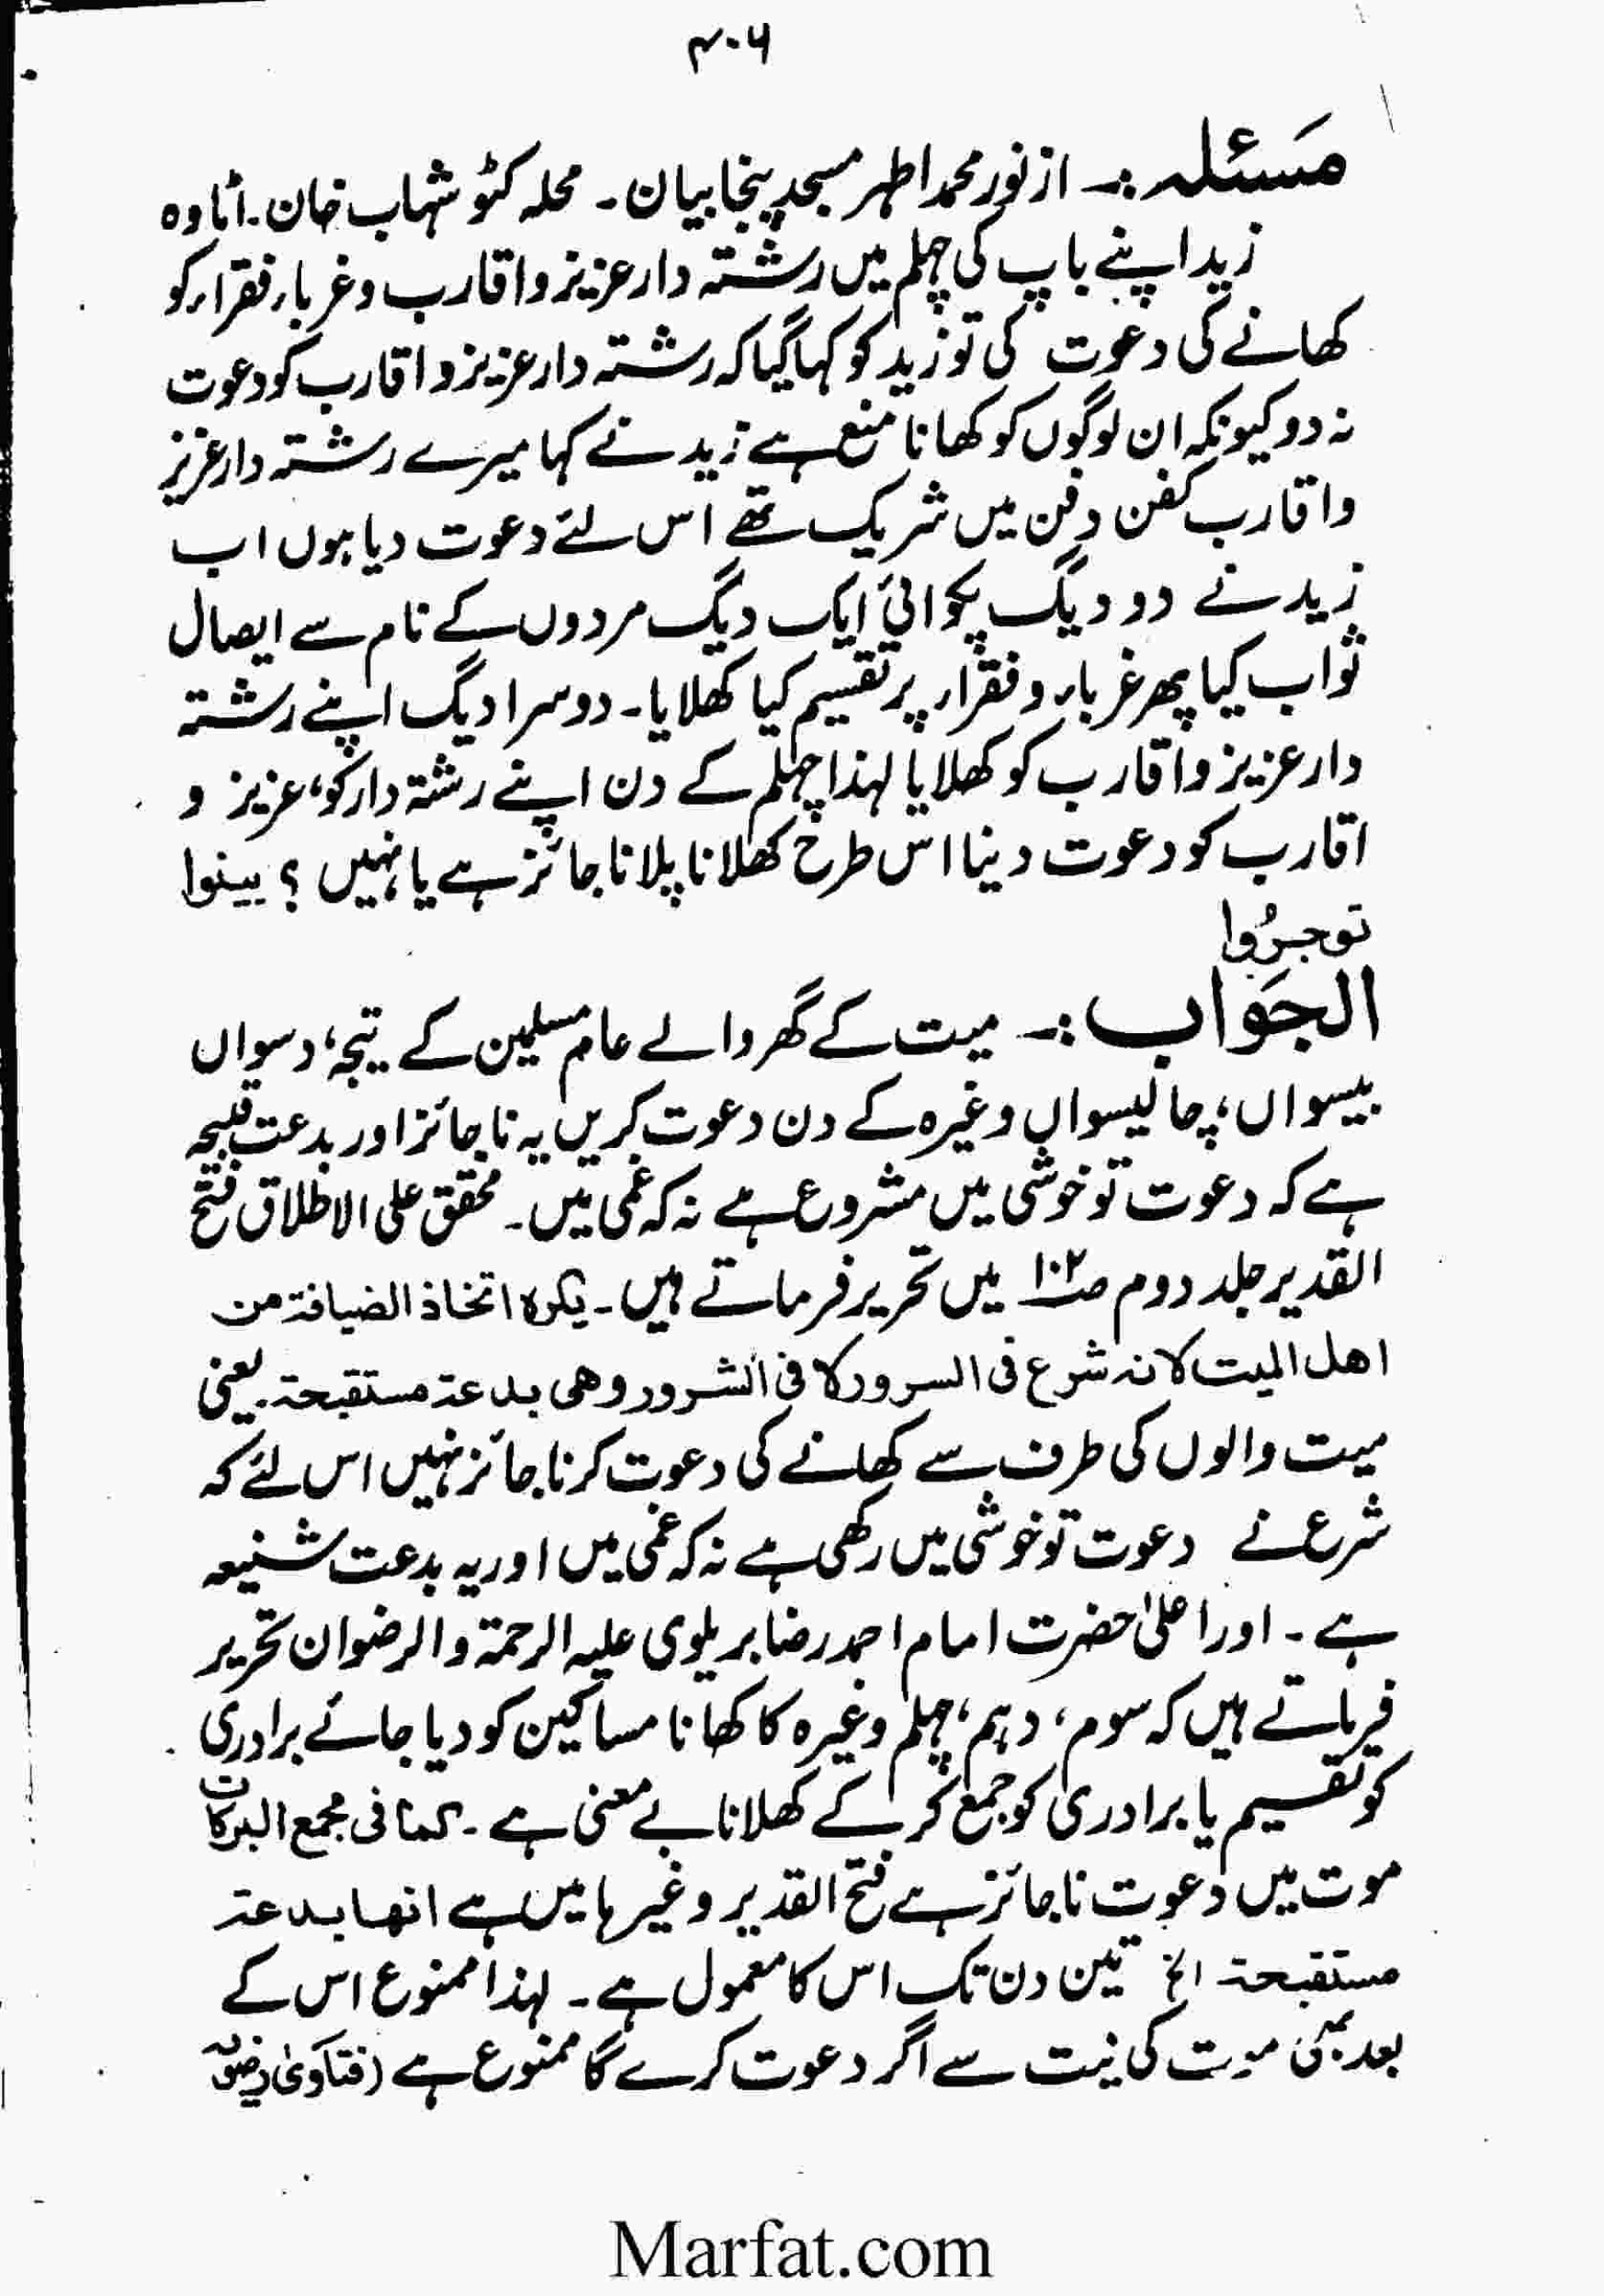 ۴۰۶
مَسئلہ:۔ از نور محمد اطہر مسجد پنجابیان۔ محلہ کٹو شہاب خان۔ اٹاوہ
زید اپنے باپ کی چہلم میں رشتہ دار عزیز و اقارب و غرباء فقراء کو
کھانے کی دعوت کی تو زید کو کہا گیا کہ رشتہ دار عزیز و اقارب کو دعوت
نہ دو کیونکہ ان لوگوں کو کھانا منع ہے زید نے کہا میرے رشتہ دار عزیز
و اقارب کفن دفن میں شریک تھے اس لئے دعوت دیا ہوں اب
زید نے دو دیگ پکوائی ایک دیگ مردوں کے نام سے ایصال
ثواب کیا پھر غرباء و فقراء پر تقسیم کیا کھلایا۔ دوسرا دیگ اپنے رشتہ
دار عزیز و اقارب کو کھلایا لہذا چہلم کے دن اپنے رشتہ دار کو، عزیز و
اقارب کو دعوت دینا اس طرح کھلانا پلانا جائز ہے یا نہیں ؟ بینوا
توجرُوا
الجَواب:۔ میت کے گھر والے عام مسلمین کے تیجہ، دسواں
بیسواں، چالیسواں وغیرہ کے دن دعوت کریں یہ ناجائز اور بدعت قبیحہ
ہے کہ دعوت تو خوشی میں مشروع ہے نہ کہ غمی میں۔ محقق علی الاطلاق فتح
القدیر جلد دوم صـ۱۰۲ میں تحریر فرماتے ہیں۔ یکرہ اتخاذ الضیافۃ من
اھل المیت لانہ شرع فی السرور لا فی الشرور وھی بدعۃ مستقبحۃ۔ یعنی
میت والوں کی طرف سے کھانے کی دعوت کرنا جائز نہیں اس لئے کہ
شرع نے دعوت تو خوشی میں رکھی ہے نہ کہ غمی میں اور یہ بدعت شنیعہ
ہے۔ اور اعلیٰ حضرت امام احمد رضا بریلوی علیہ الرحمۃ والرضوان تحریر
فرماتے ہیں کہ سوم، دہم، چہلم وغیرہ کا کھانا مساکین کو دیا جائے برادری
کو تقسیم یا برادری کو جمع کر کے کھلانا بے معنی ہے۔ کما فی مجمع البرکات
موت میں دعوت ناجائز ہے فتح القدیر وغیرہا میں ہے انھا بدعۃ
مستقبحۃ الخ تین دن تک اس کا معمول ہے۔ لہذا ممنوع اس کے
بعد بھی موت کی نیت سے اگر دعوت کرے گا ممنوع ہے (فتاویٰ رضویہ
Marfat.com